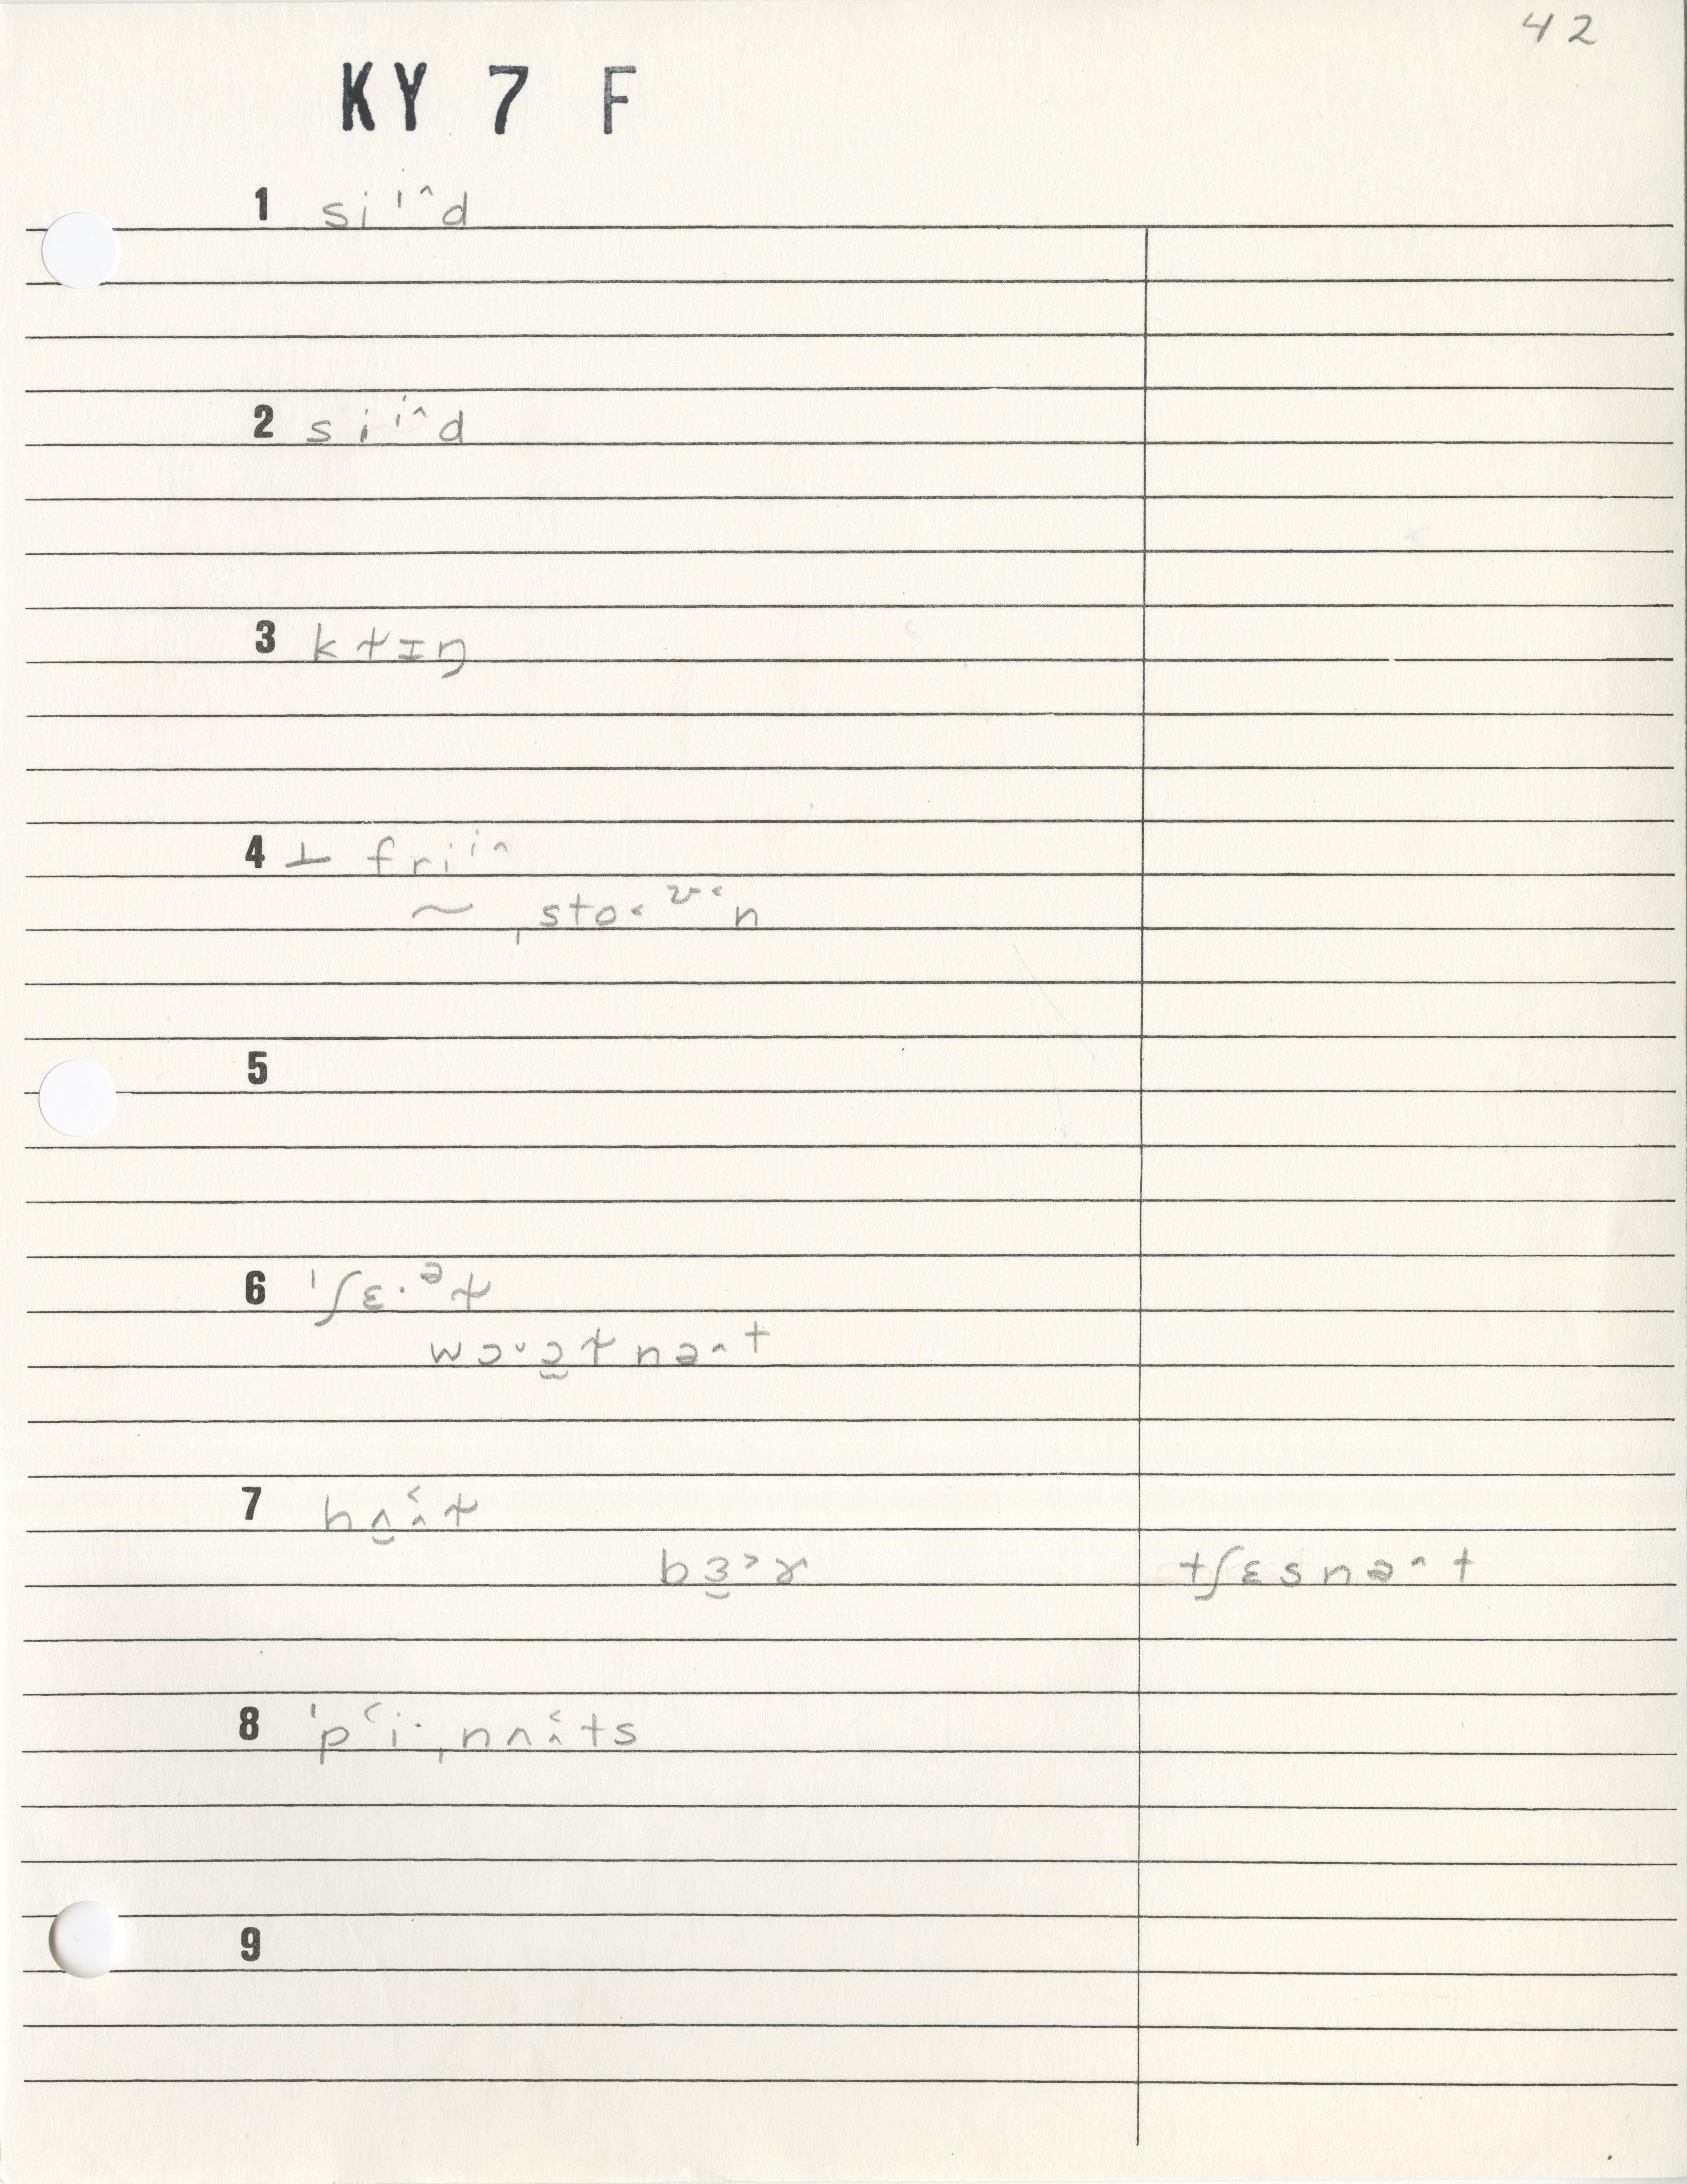 42
KY 7 F
1 siⁱ^d
2 siⁱ^d
3 kɫɪŋ
4 ⊥ friⁱ^
~ ˌsto˂ʊ˂n
5
6 ˈʃɛ·ᵊɫ
wɔ˅ɔ̯ɫnə^t
7 hʌ̯ɪ˂^ɫ
bɜ̯˃ɚ tʃɛsnə^t
8 ˈpʻi·ˌnʌɪ˂^ts
9